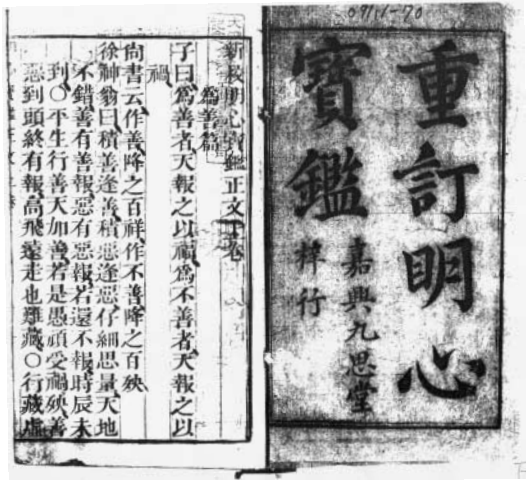 09111-70
重訂明心
寶鑑
嘉興九思堂
梓行
新校明心寶鑑正文上卷
為善篇
子曰為善者天報之以福為不善者天報之以
禍
尚書云作善降之百祥作不善降之百殃
徐神翁曰積善逢善積惡逢惡仔細思量天地
不錯善有善報惡有惡報若還不報時辰未
到〇平生行善天加善若是愚頑受禍殃善
惡到頭終有報高飛遠走也難藏〇行藏虛